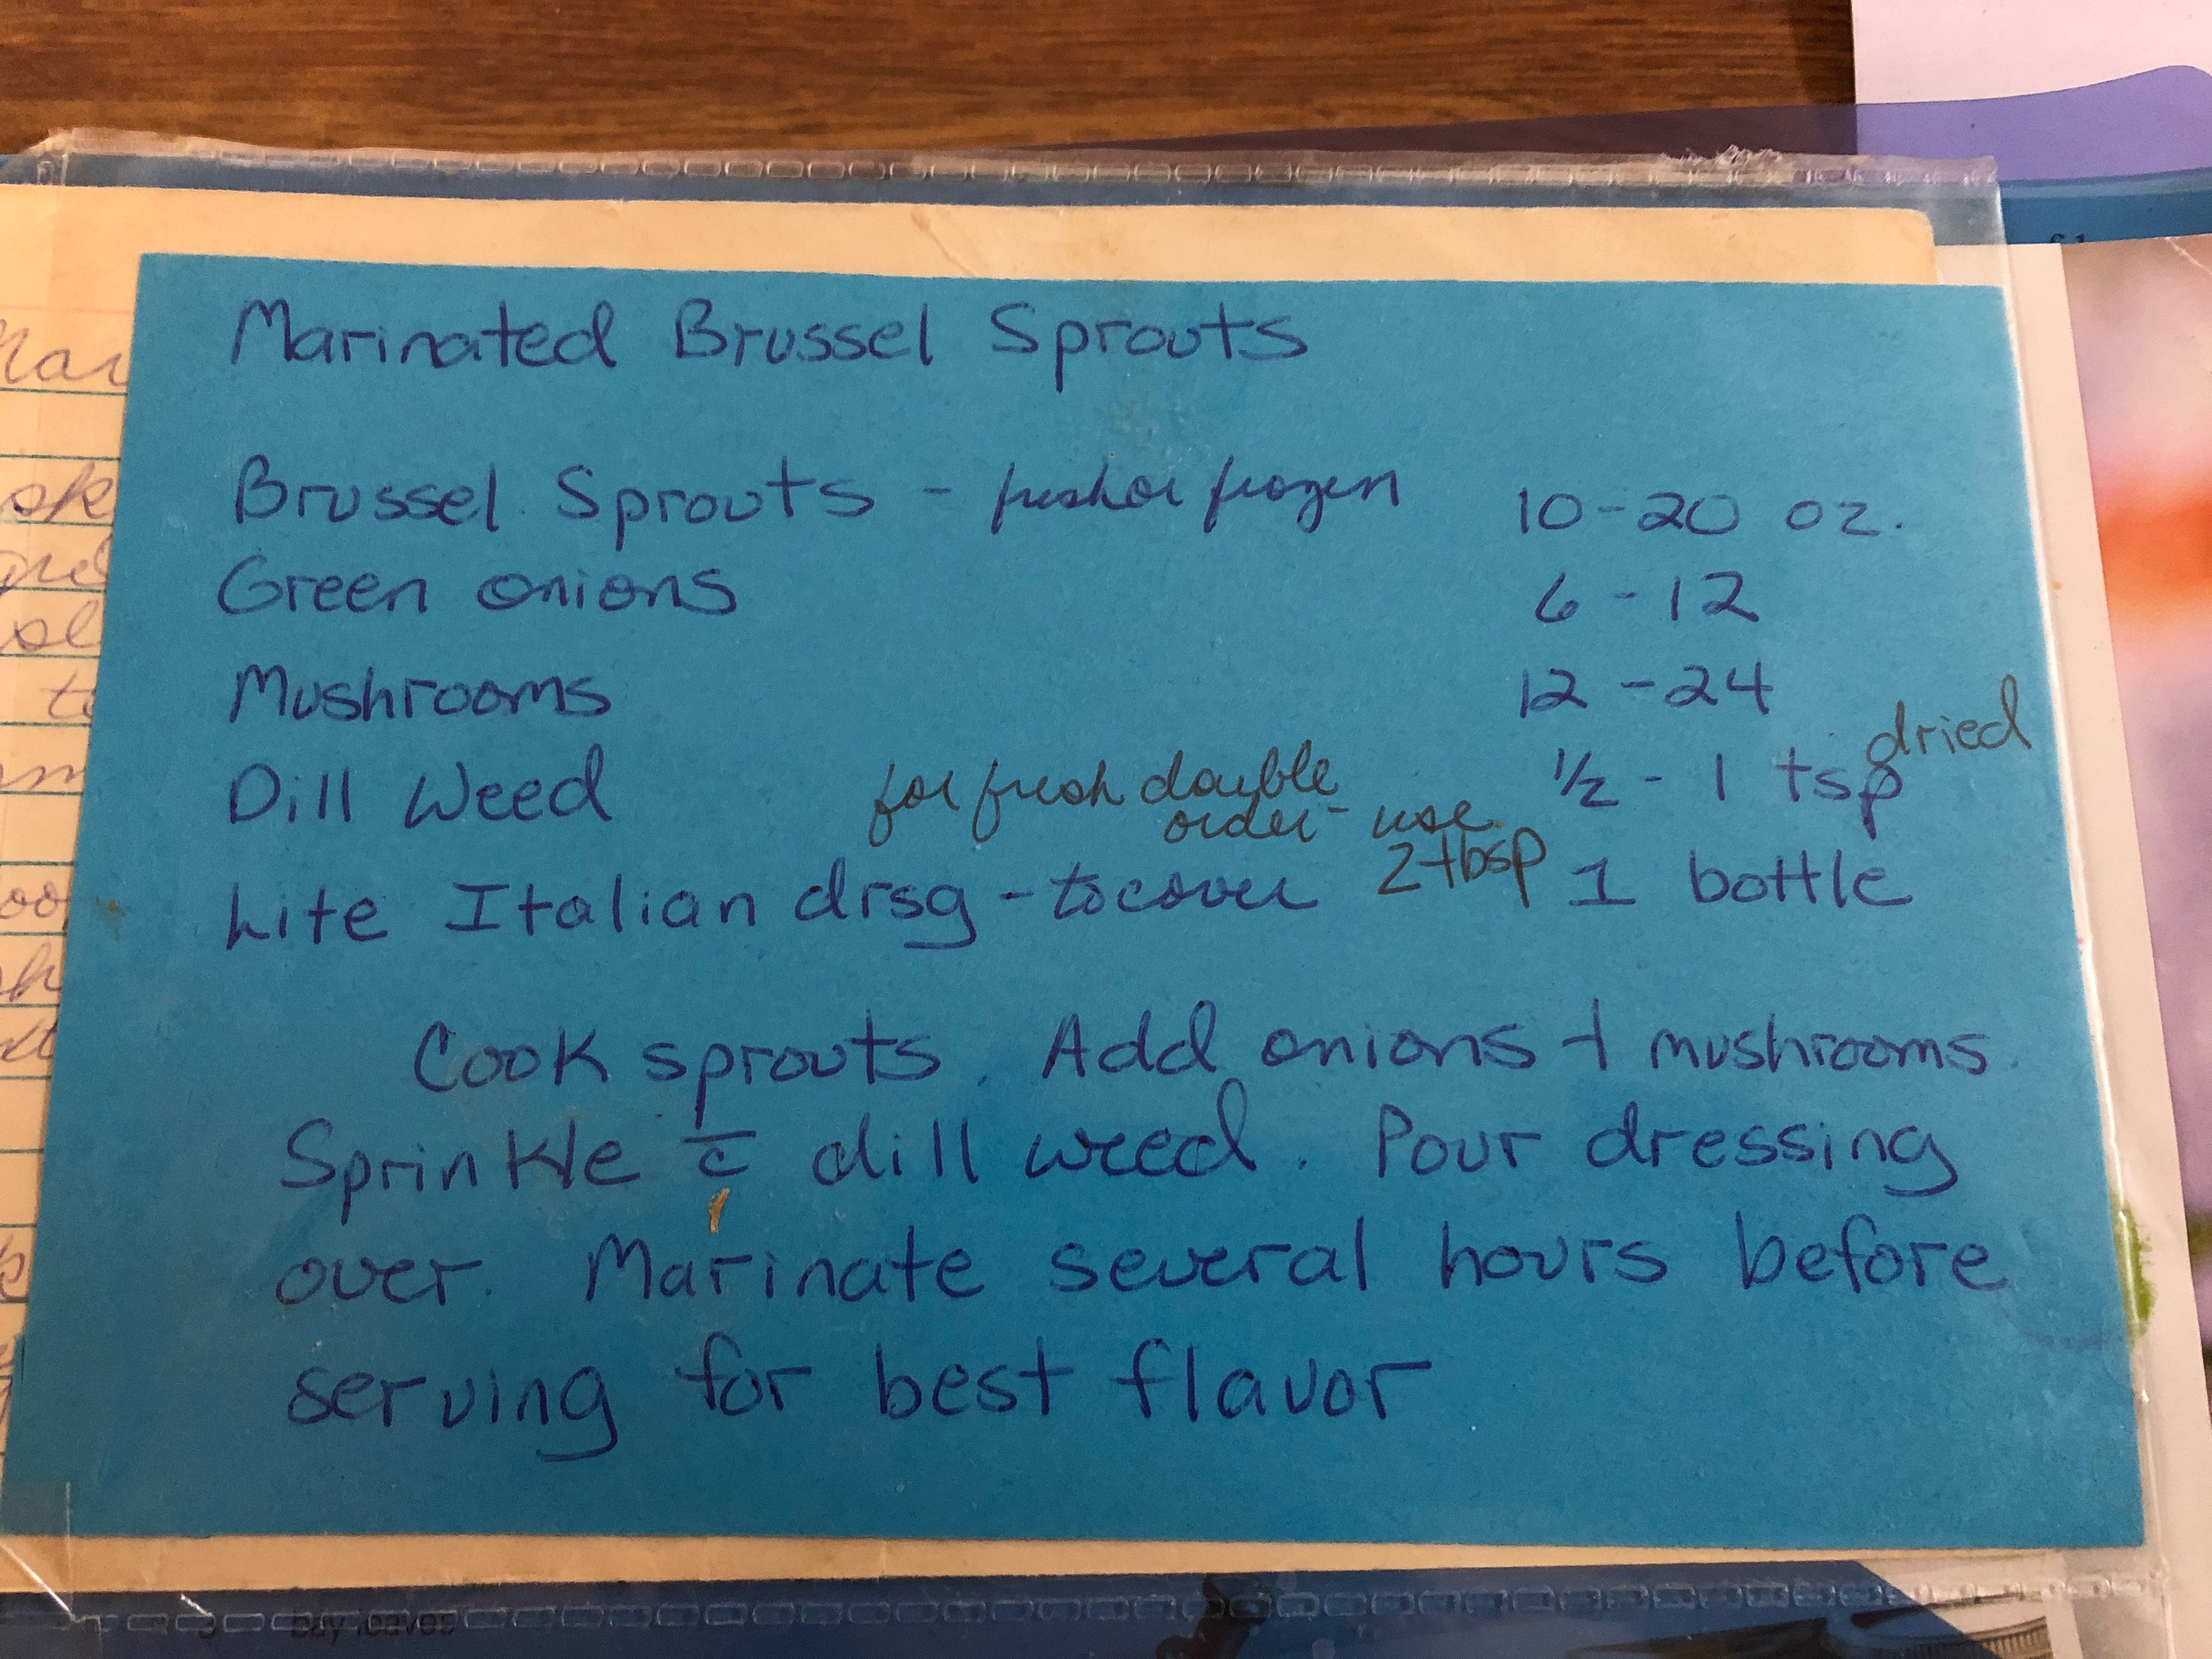 Marinated Brussel Sprouts
Brussel Sprouts - fresh or frozen 10-20 oz.
Green onions 6-12
Mushrooms 12-24
Dill Weed for fresh double order - use 2 tbsp 1/2 - 1 tsp dried
Lite Italian drsg - to cover 1 bottle
Cook sprouts. Add onions + mushrooms.
Sprinkle c̅ dill weed. Pour dressing
over. Marinate several hours before
serving for best flavor
bay leaves